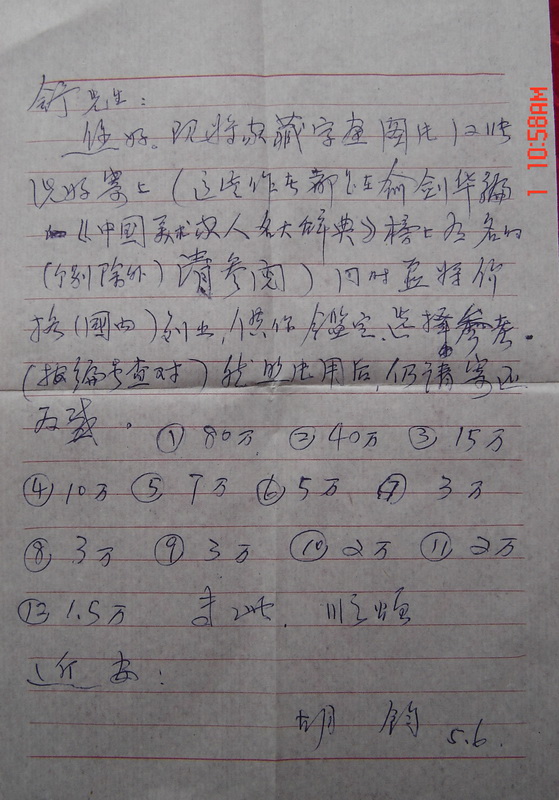 舒先生：
您好。现将家藏字画图片12张
说好寄上（这些作者都是在俞剑华编
《中国美术家人名大辞典》榜上有名的
（个别除外）请参阅）同时并将价
格（国内）列出，供你 鉴定、选择参考。
（按编号查对）照片用后，仍请寄还
为感。① 80万 ② 40万 ③ 15万
④ 10万 ⑤ 7万 ⑥ 5万 ⑦ 3万
⑧ 3万 ⑨ 3万 ⑩ 2万 ⑪ 2万
⑫ 1.5万 专此. 顺颂
近安：
胡钧 5.6.
1 10:58AM